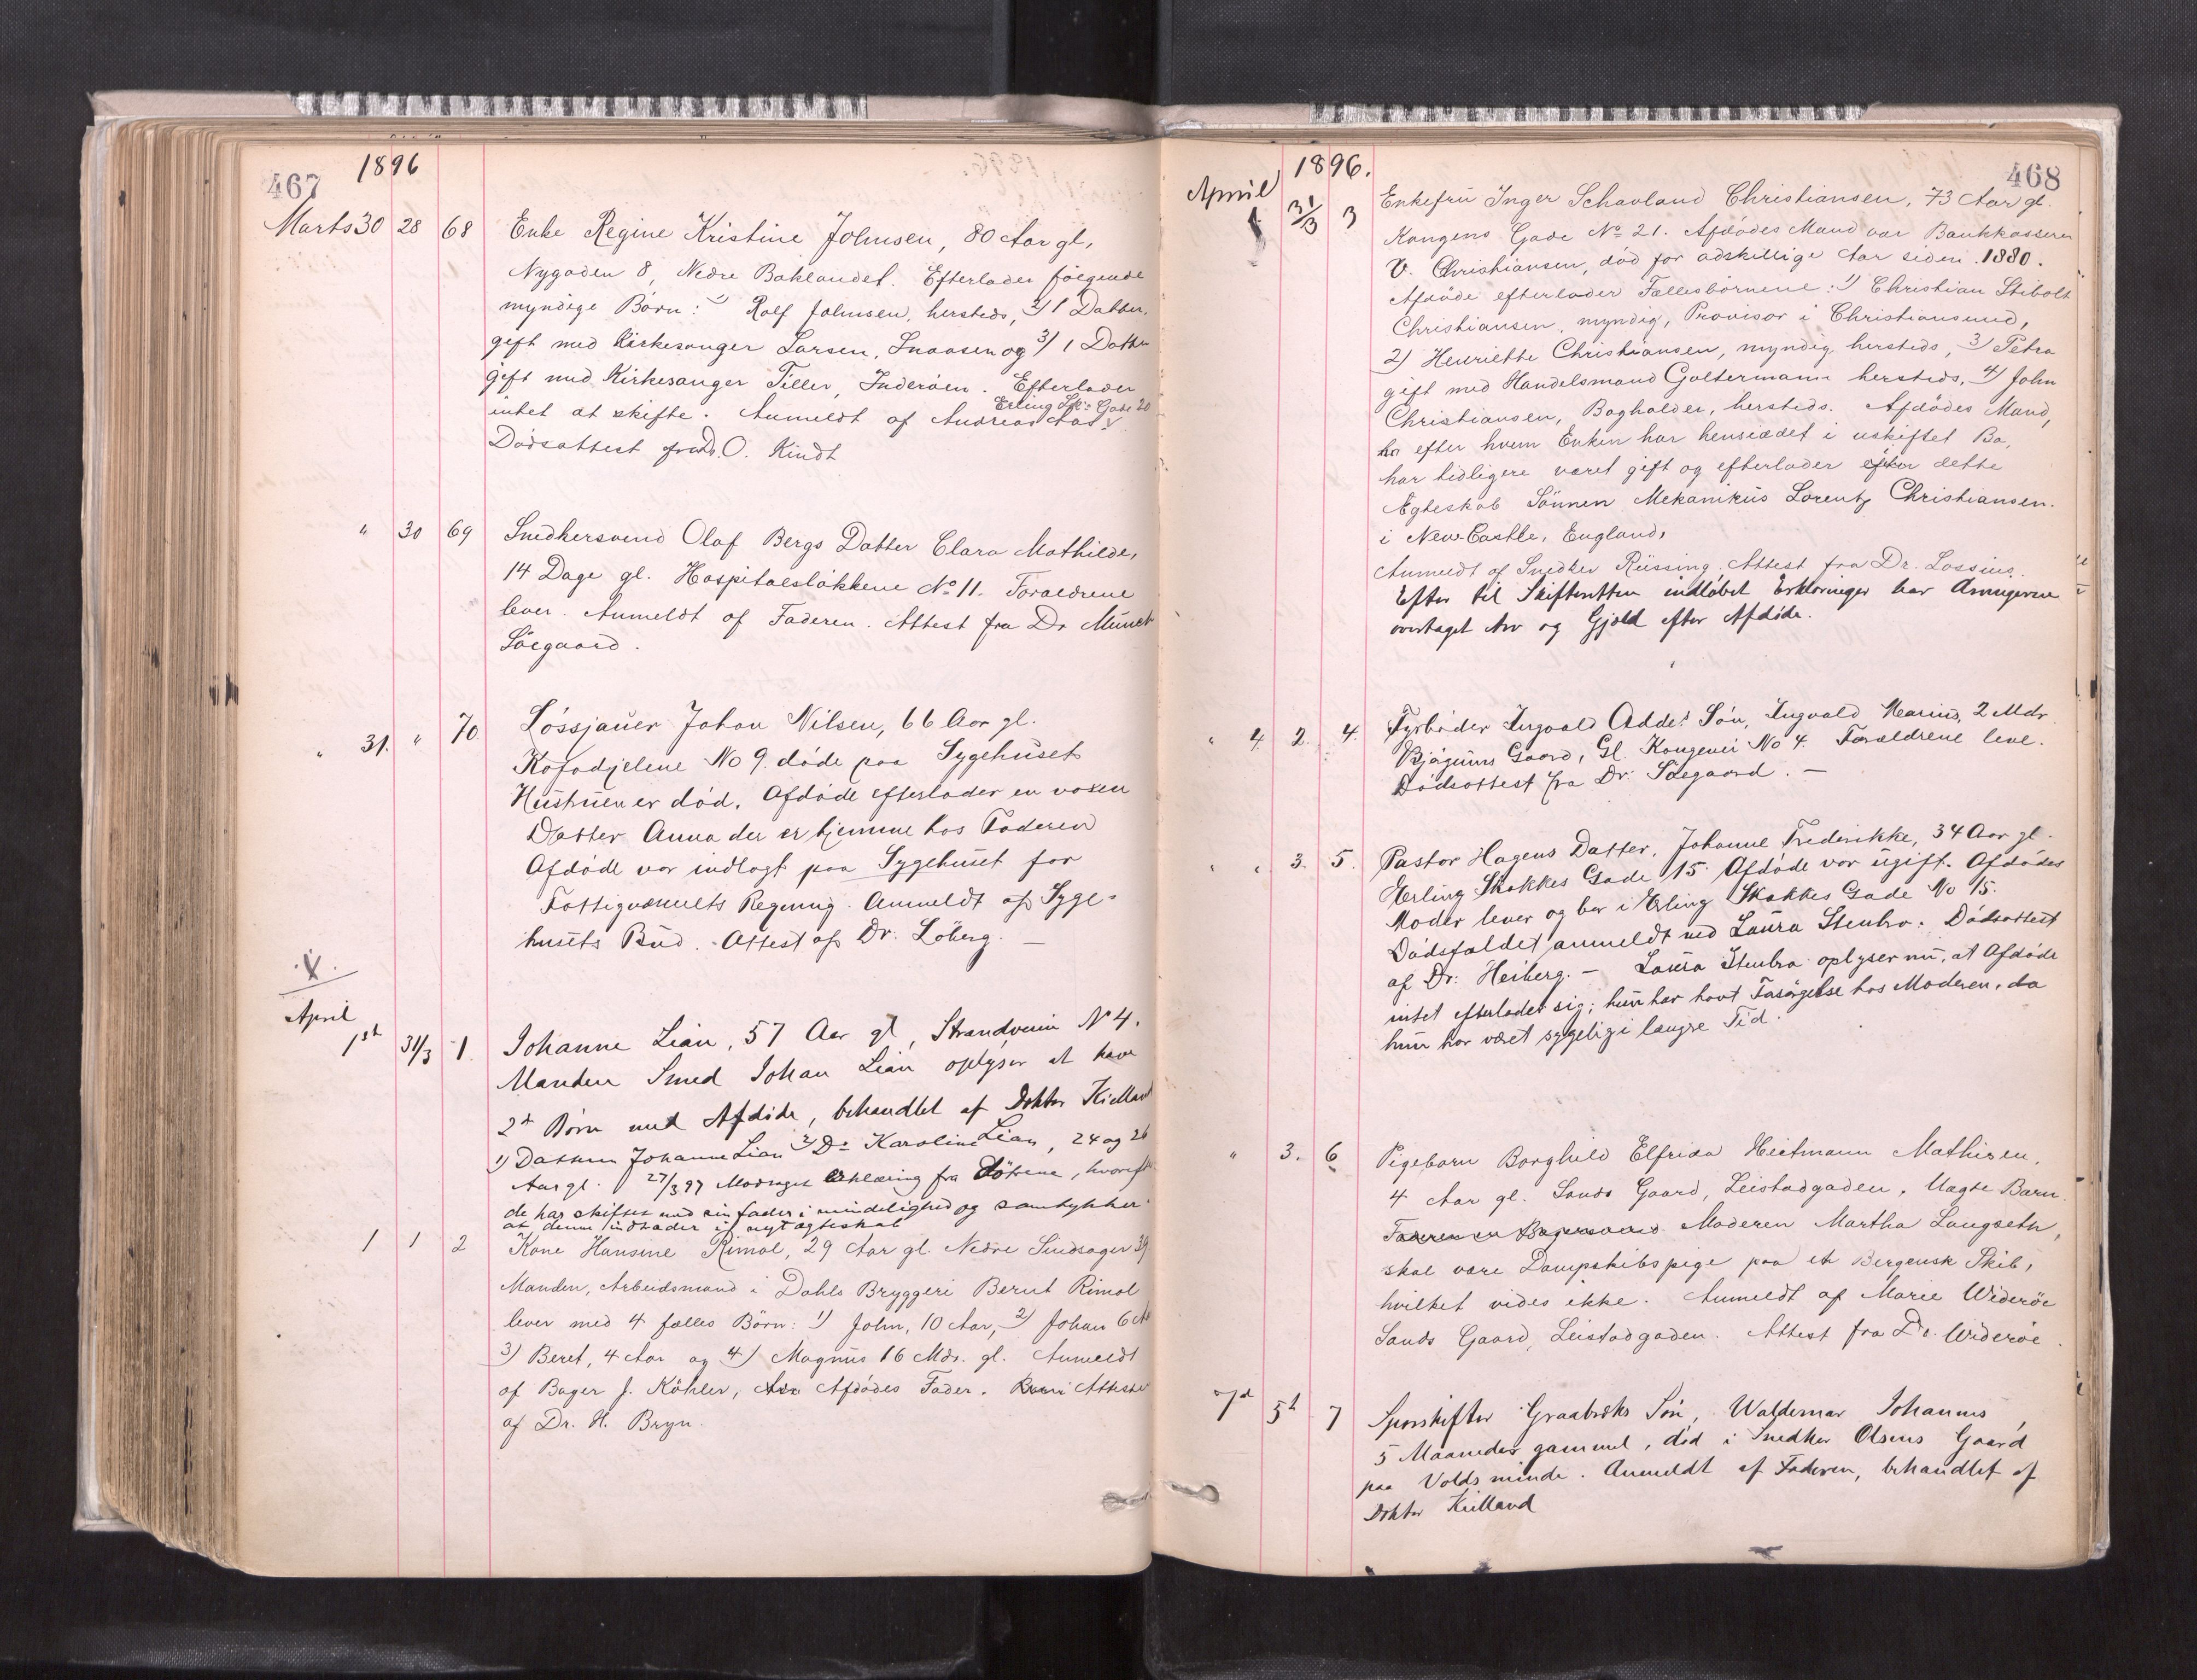 467
1896
Marts 30 28 68 Enke Regine Kristine Johnsen, 80 Aar gl,
Nygaden 8, Nedre Baklandet. Efterlader følgende
myndige Børn: 1) Rolf Johnsen, hersteds, 2) 1 Datter,
gift med Kirkesanger Larsen, Snaasen og 3) 1 Datter
gift med Kirkesanger Tiller, Inderøen. Efterlader
intet at skifte. Anmeldt af Andreas Aas Erling Sk: Gade 20
Dødsattest fra Dr. O. Kindt
" 30 69 Snedkersvend Olaf Bergs Datter Clara Mathilde,
14 Dage gl. Hospitalsløkkene No 11. Forældrene
lever. Anmeldt af Faderen. Attest fra Dr Münch
Söegaard.
" 31. " 70 Løssjauer Johan Nilsen, 66 Aar gl.
No 9. døde paa Sygehuset
Hustruen er død. Afdøde efterlader en voxen
Datter Anna der er hjemme hos Faderen
Afdøde var indlagt paa Sygehuset for
Fattigvæsnets Regning. Anmeldt af Syge-
husets Bud. Attest af Dr. Löberg. —
April
1st 31/3 1. Johanne Lian, 57 Aar gl, Strandveien No 4.
Manden Smed Johan Lian oplyser at have
2d Børn med Afdøde, behandlet af Doktor Kielland
1) Datteren Johanne Lian 2) Do Karoline Lian, 24 og 26
Aar gl. 27/3 97 Modtaget Erklæring fra Døtrene, hvorefter
de har skiftet med sin fader i mindelighed og samtykker
at denne indtræder i nyt ægteskab
1 1 2 Kone Hansine Rimol, 29 Aar gl. Nedre 39
Manden, Arbeidsmand i Dahls Bryggeri Bernt Rimol
lever med 4 fælles Børn: 1) John, 10 Aar, 2) Johan 6 Aar
3) Beret, 4 Aar og 4) Magnus 16 Mdr. gl. Anmeldt
af Bager J. Köhler, Afdødes Fader. Attest
af Dr. H. Bryn.
468
1896.
April
1 31/3 3 Enkefru Inger Schavland Christiansen, 73 Aar gl.
Kongens Gade No 21. Afdødes Mand var Bankkasserer
V. Christiansen, død for adskillige Aar siden. 1880.
Afdøde efterlader Fællesbørnene: 1) Christian Stibolt
Christiansen, myndig, Provisor i Christiansund,
2) Henriette Christiansen, myndig hersteds, 3) Petra
gift med Handelsmand Goltermann hersteds, 4) John
Christiansen, Bogholder, hersteds. Afdødes Mand,
efter hvem Enken har hensiddet i uskiftet Bo,
har tidligere været gift og efterlader efter dette
Ægteskab Sønnen Mekanikus Lorentz Christiansen.
i New-Castle, England,
Anmeldt af Snedker Rüssing. Attest fra Dr. Lossius.
Efter til Skifteretten indløbet Erklæringer har Arvingerne
overtaget Arv og Gjæld efter Afdøde.
" 4 2. 4. Fyrbøder Ingvald Søn, Ingvald Marius, 2 Mdr
Gaard, Gl. Kongevei No 4. Forældrene leve.
Dødsattest fra Dr. Söegaard. —
" " 3. 5. Pastor Hagens Datter, Johanne Frederikke, 34 Aar gl.
Erling Skakkes Gade 15. Afdøde var ugift. Afdødes
Moder lever og bor i Erling Skakkes Gade No 15.
Dødsfaldet anmeldt ved Laura Stenbro. Dødsattest
af Dr. Heiberg. — Laura Stenbro oplyser nu, at Afdøde
intet efterlader sig; hun har havt Forsørgelse hos Moderen, da
hun har været sygelig i længre Tid.
" 3. 6 Pigebarn Borghild Elfrida Heitmann Mathisen,
4 Aar gl. Sands Gaard, Leistadgaden. Uægte Barn.
Faderen en Bagersvend Moderen Martha Langseth,
skal være Dampskibspige paa et Bergensk Skib,
hvilket vides ikke. Anmeldt af Marie Widerøe
Sands Gaard, Leistadgaden. Attest fra Dr. Widerøe.
7d 5t 7 Sporskifter Graabræks Søn, Waldemar Johannes,
5 Maaneder gammel, død i Snedker Olsens Gaard
paa Voldsminde. Anmeldt af Faderen, behandlet af
Doktor Kielland